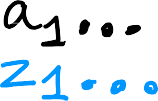 a1...
z1...